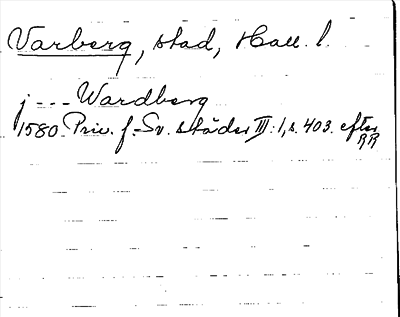 Varberg, stad, Hall. l.
j --- Wardberg
1580. Priv. f. Sv. städer III:1, s. 403. efter
RR